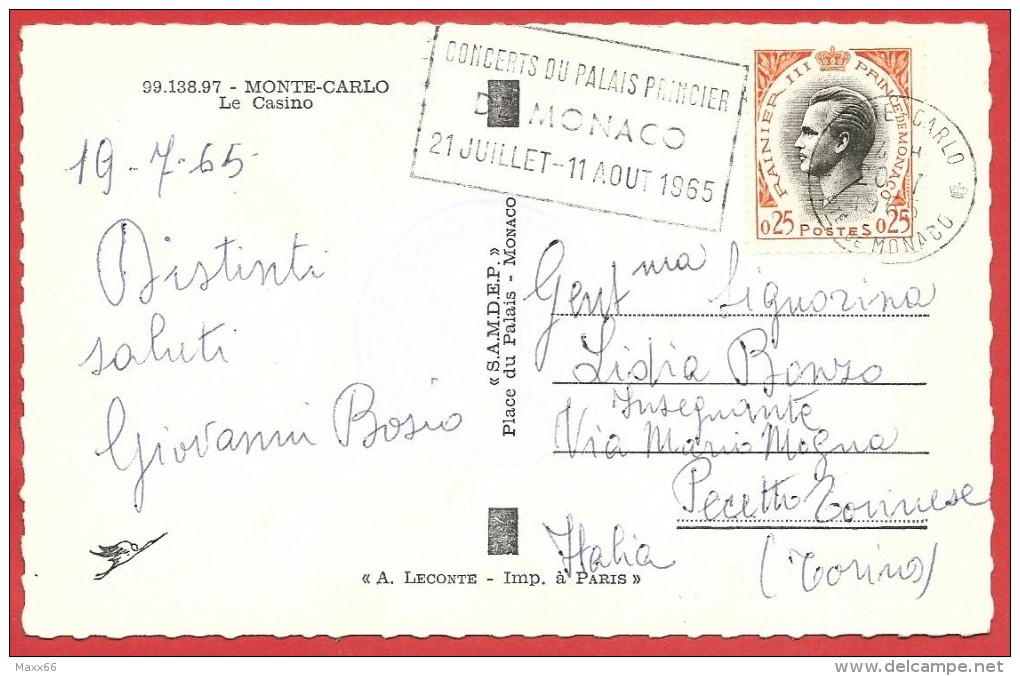 99.138.97 - MONTE-CARLO
Le Casino
CONCERTS DU PALAIS PRINCIER
DE MONACO
21 JUILLET-11 AOUT 1965
RAINIER III PRINCE DE MONACO
0.25 POSTES 0.25
E-CARLO
1965
PTE DE MONACO
19-7-65
Distinti
saluti
Giovanni Bosio
« S.A.M.D.E.P. »
Place du Palais - MONACO
Gent.ma Signorina
Lidia Bonzo
Insegnante
Via Mario Mogna
Pecetto Torinese
Italia
(Torino)
« A. LECONTE - Imp. à PARIS »
Maxx66
www.delcampe.net